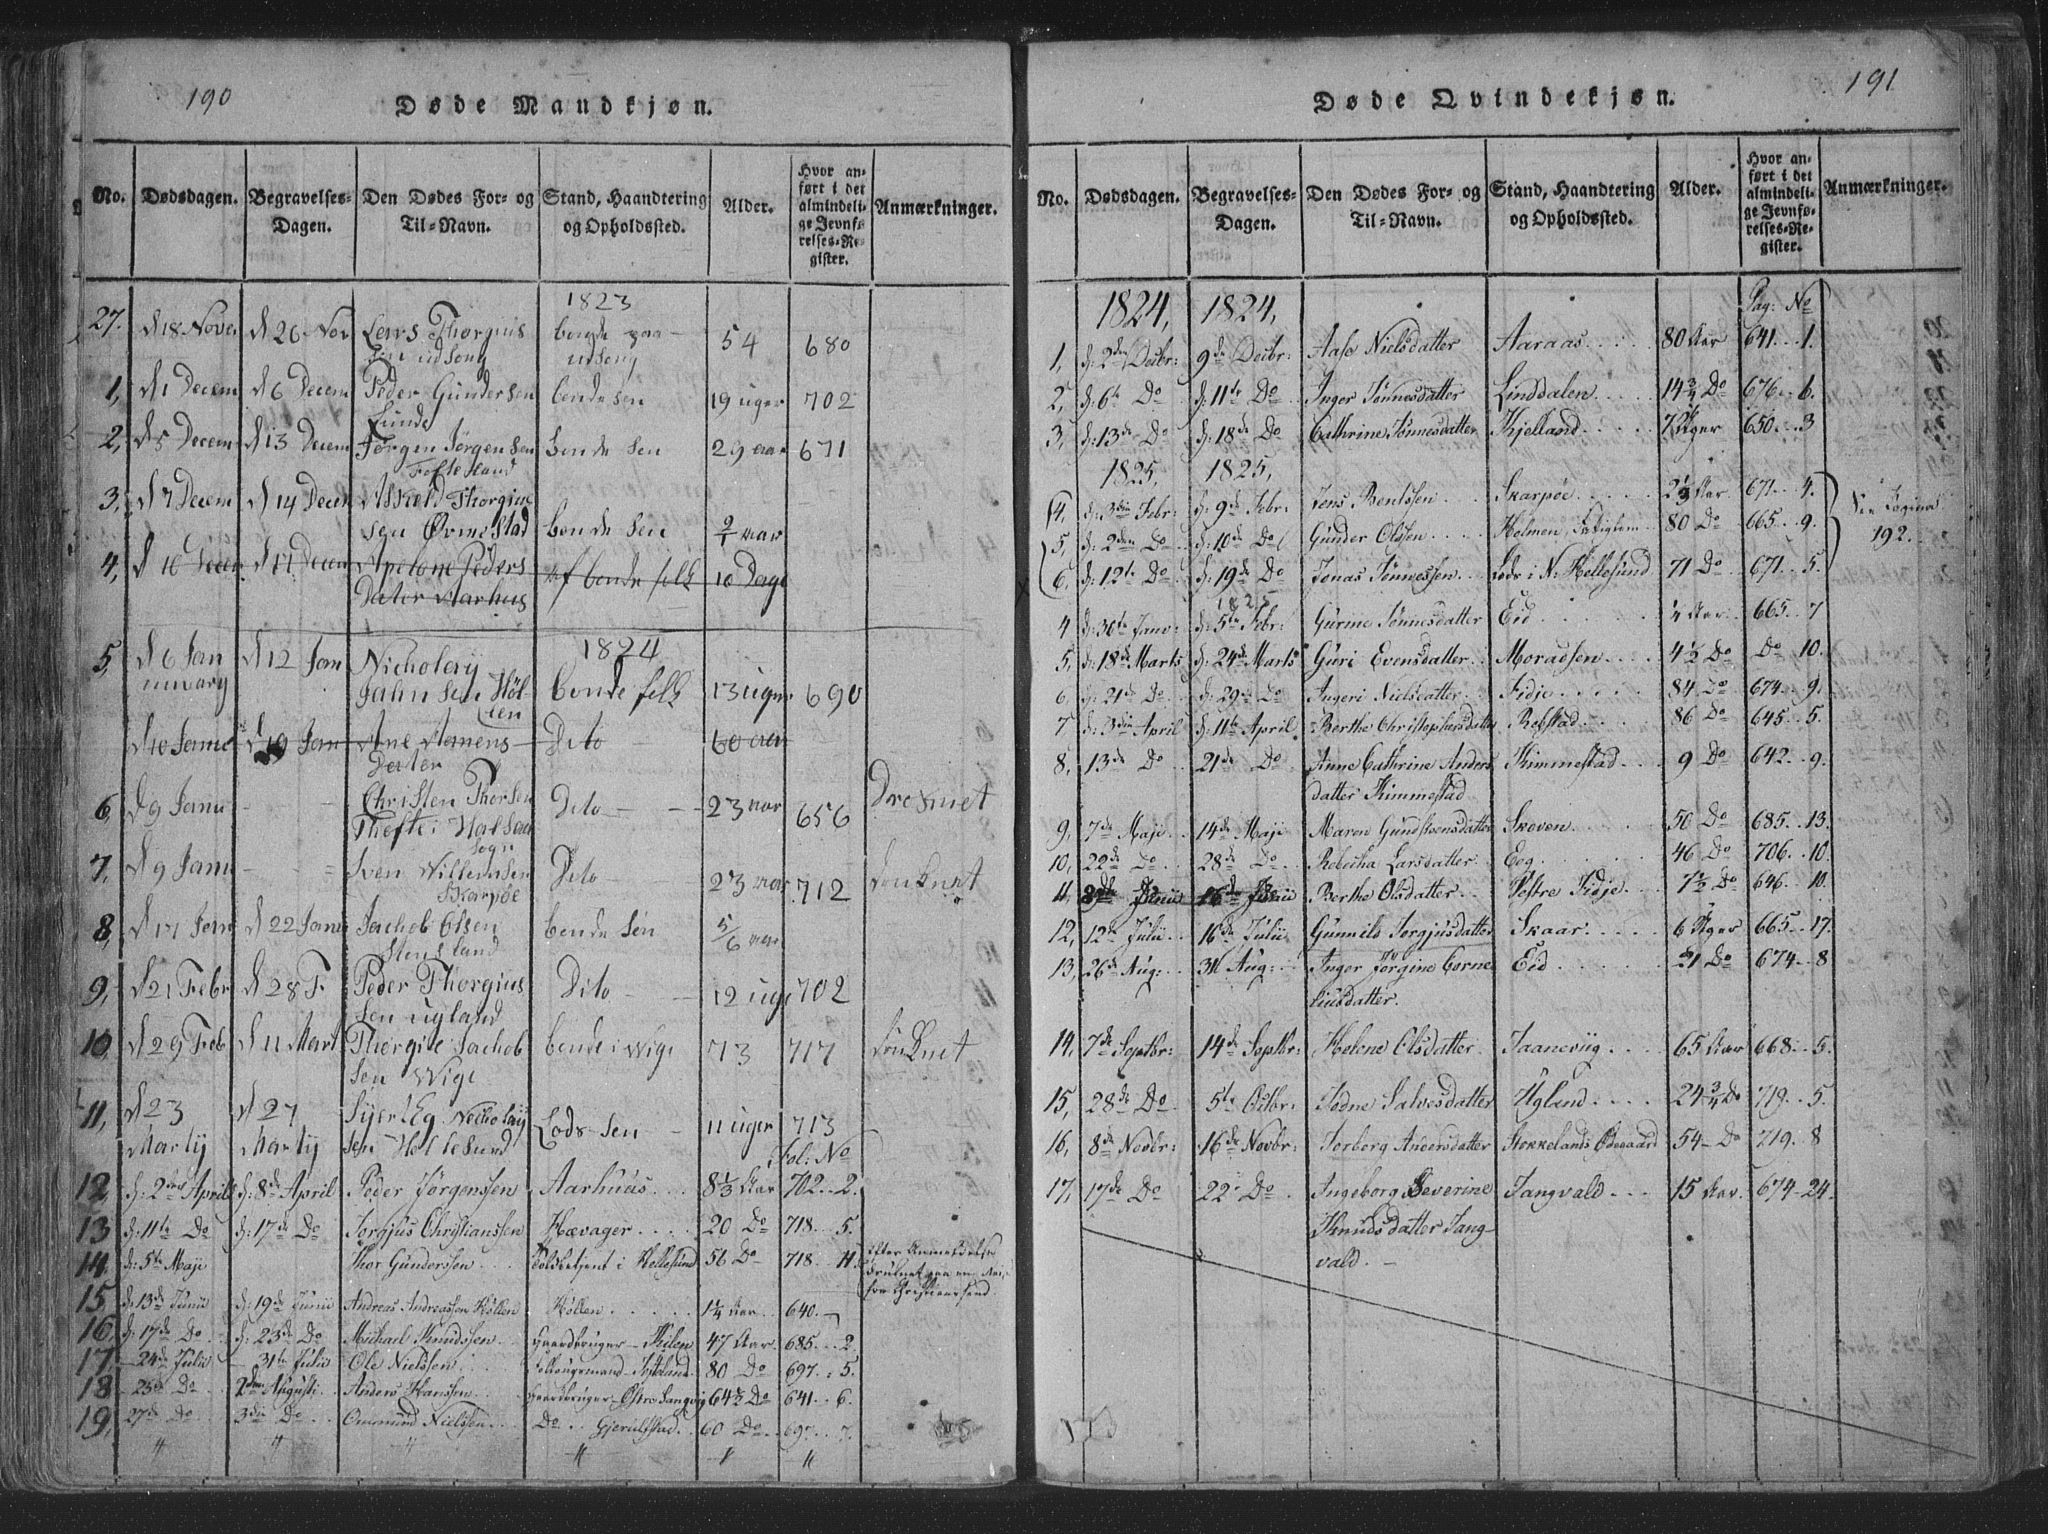 190
Døde Mandkjøn.
No. Dødsdagen. Begravelses-Dagen. Den Dødes For- og Til-Navn. Stand, Haandtering og Opholdssted. Alder. Hvor anført i det almindelige Jevnførelses-Register. Anmærkninger.
1823
27. d 18 Nove d 26 Nov Lars Thorgius bonde paa 54 680
sen udsong udsong
1, d 1 Decem d 6 Decem Peder Gundersen bondesen 19 uger 702
Lunde
2, d 5 Decem d 13 Decem Jørgen Jørgensen bonde sen 29 aar 671
3, d 7 Decem d 14 Decem Thorgius
sen Øvrnestad bonde sen aar
4, d 10 Decem d 17 Decem Peders af bonde folk 10 Dage
Dater Aarhus
1824
5, d 6 Jan d 12 Jan Nicholay
nuwary Jahnsen Høllen bonde folk 13 uger 690
d 10 Janu d 19 Jan Ane Dito 60 aar
Dater
6, d 9 Janu Christen Thorsen Dito 23 aar 656
sogn
7, d 9 Janu Sven Willumsen Dito 23 aar 712
Skarpøe
8, d 17 Janu d 22 Janu Jachob Olsen bonde sen 5/6 aar
Stensland
9, d 21 Febr d 28 F Peder Thorgius Dito 12 uge 702
sen ugland
10 d 29 Feb d 11 Mart Thorgie Jachob bonde i Wige 73 717
sen Wige
11, d 23 d 27 Nicholay Lods sen 11 uger 713
Marty Marty sen Hellesund
Fol: No
12 d: 2den April d: 8de April Peder Jørgenssen Aarhuus 8 1/3 Aar 702 2
13 d: 11te Do d: 17de Do Torgjus Christianssen Hævager 20 Do 718 5
14 d: 5te Maji Thor Gunderssen Toldbetjent i Hellesund 56 Do 718 11 Efter Anmeldelse
for Christianssand
15 d: 13de Junii d: 19de Junii Andreas Andreassen Høllen Høllen 1 1/4 Aar 640
16 d: 17de Do d: 23de Do Michael Knudssen Gaardbruger Kilen 47 Aar 685 2
17 24de Julii 31te Julii Ole Nielssen 80 Do 697 5
18 25de Do 2den Augusti Anders Hanssen Gaardbruger Østre Langvig 64 1/2 Do 641 6
19, 27de Do 3die Do Ommund Nielssen Do Gjerulfstad 60 Do 697 7
191
Døde Qvindekjøn.
No. Dødsdagen. Begravelses-Dagen. Den Dødes For- og Til-Navn. Stand, Haandtering og Opholdssted. Alder. Hvor anført i det almindelige Jevnførelses-Register. Anmærkninger.
1824, 1824, Pag: No
1, d: 2den Decbr: 9de Decbr: Aase Nielsdatter Aaraas 80 Aar 641 1.
2, d: 6te Do d: 11te Do Inger Tønnesdatter Linddalen 14 3/4 Do 676 6.
3, d: 13de Do d: 18de Do Cathrine Tønnesdatter Kjelland Uger 650 3
1825, 1825,
4, d: 3die Febr: d: 9de Febr: Jens Bentssen Skarpøe 2 1/3 Aar 671 4. See Pagina
5, d: 2den Do d: 10de Do Gunder Olssen Holmen 80 Do 665 9. 192.
6, d: 12te Do d: 19de Do Jonas Tønnessen Lods i N: Hellesund 71 Do 671 5.
1825
4 d: 30te Janv: d: 5te Febr: Gurine Tønnesdatter Eid 1/4 Aar 665 7
5, d: 18de Marts d: 24de Marts Guri Evensdatter Moradsen 4 1/2 Do Do 10.
6 d: 21de Do d: 29de Do Ingeri Nielsdatter Fidje 84 Do 674 9.
7 d: 3die April d: 11te April Berthe Christophersdatter Refstad 86 Do 645 5.
8, 13de Do 21de Do Anne Cathrine Anders Kimmestad 9 Do 642 9.
datter Kimmestad
9, 7de Maji 14de Maji Maren Gundsteensdatter Skoven 50 Do 685 13.
10, 22de Do 28de Do Rebecka Larsdatter Eeg 46 Do 706 10
11, 9de Junii 16de Junii Berthe Olsdatter Vestre Fidje 7 1/2 Do 646 10.
12, 12te Julii 16de Julii Gunnild Torgjusdatter Skaar 6 Uger 665 17.
13, 26de Aug: 31 Aug: Inger Jørgine Corne Eid 21 Do 674 8
liusdatter.
14, 7de Septbr: 14de Septbr: Helene Olsdatter Taanevig 65 Aar 668 5.
15, 28de Do 5te Octbr: Tødne Salvesdatter Ugland 24 3/4 Do 719 5.
16, 8de Novbr: 16de Novbr: Torborg Andersdatter Stokkelands Ødegaard 54 Do 719 8
17, 17de Do 22 Do Ingeborg Severine Tangvald 15 Aar 674 24
Knudsdatter Tang-
vald.